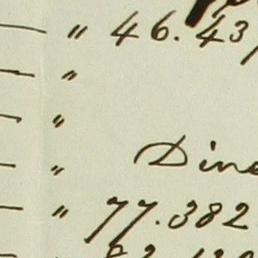 — " 46.43
— "
— "
— " Dine
— " 77.382